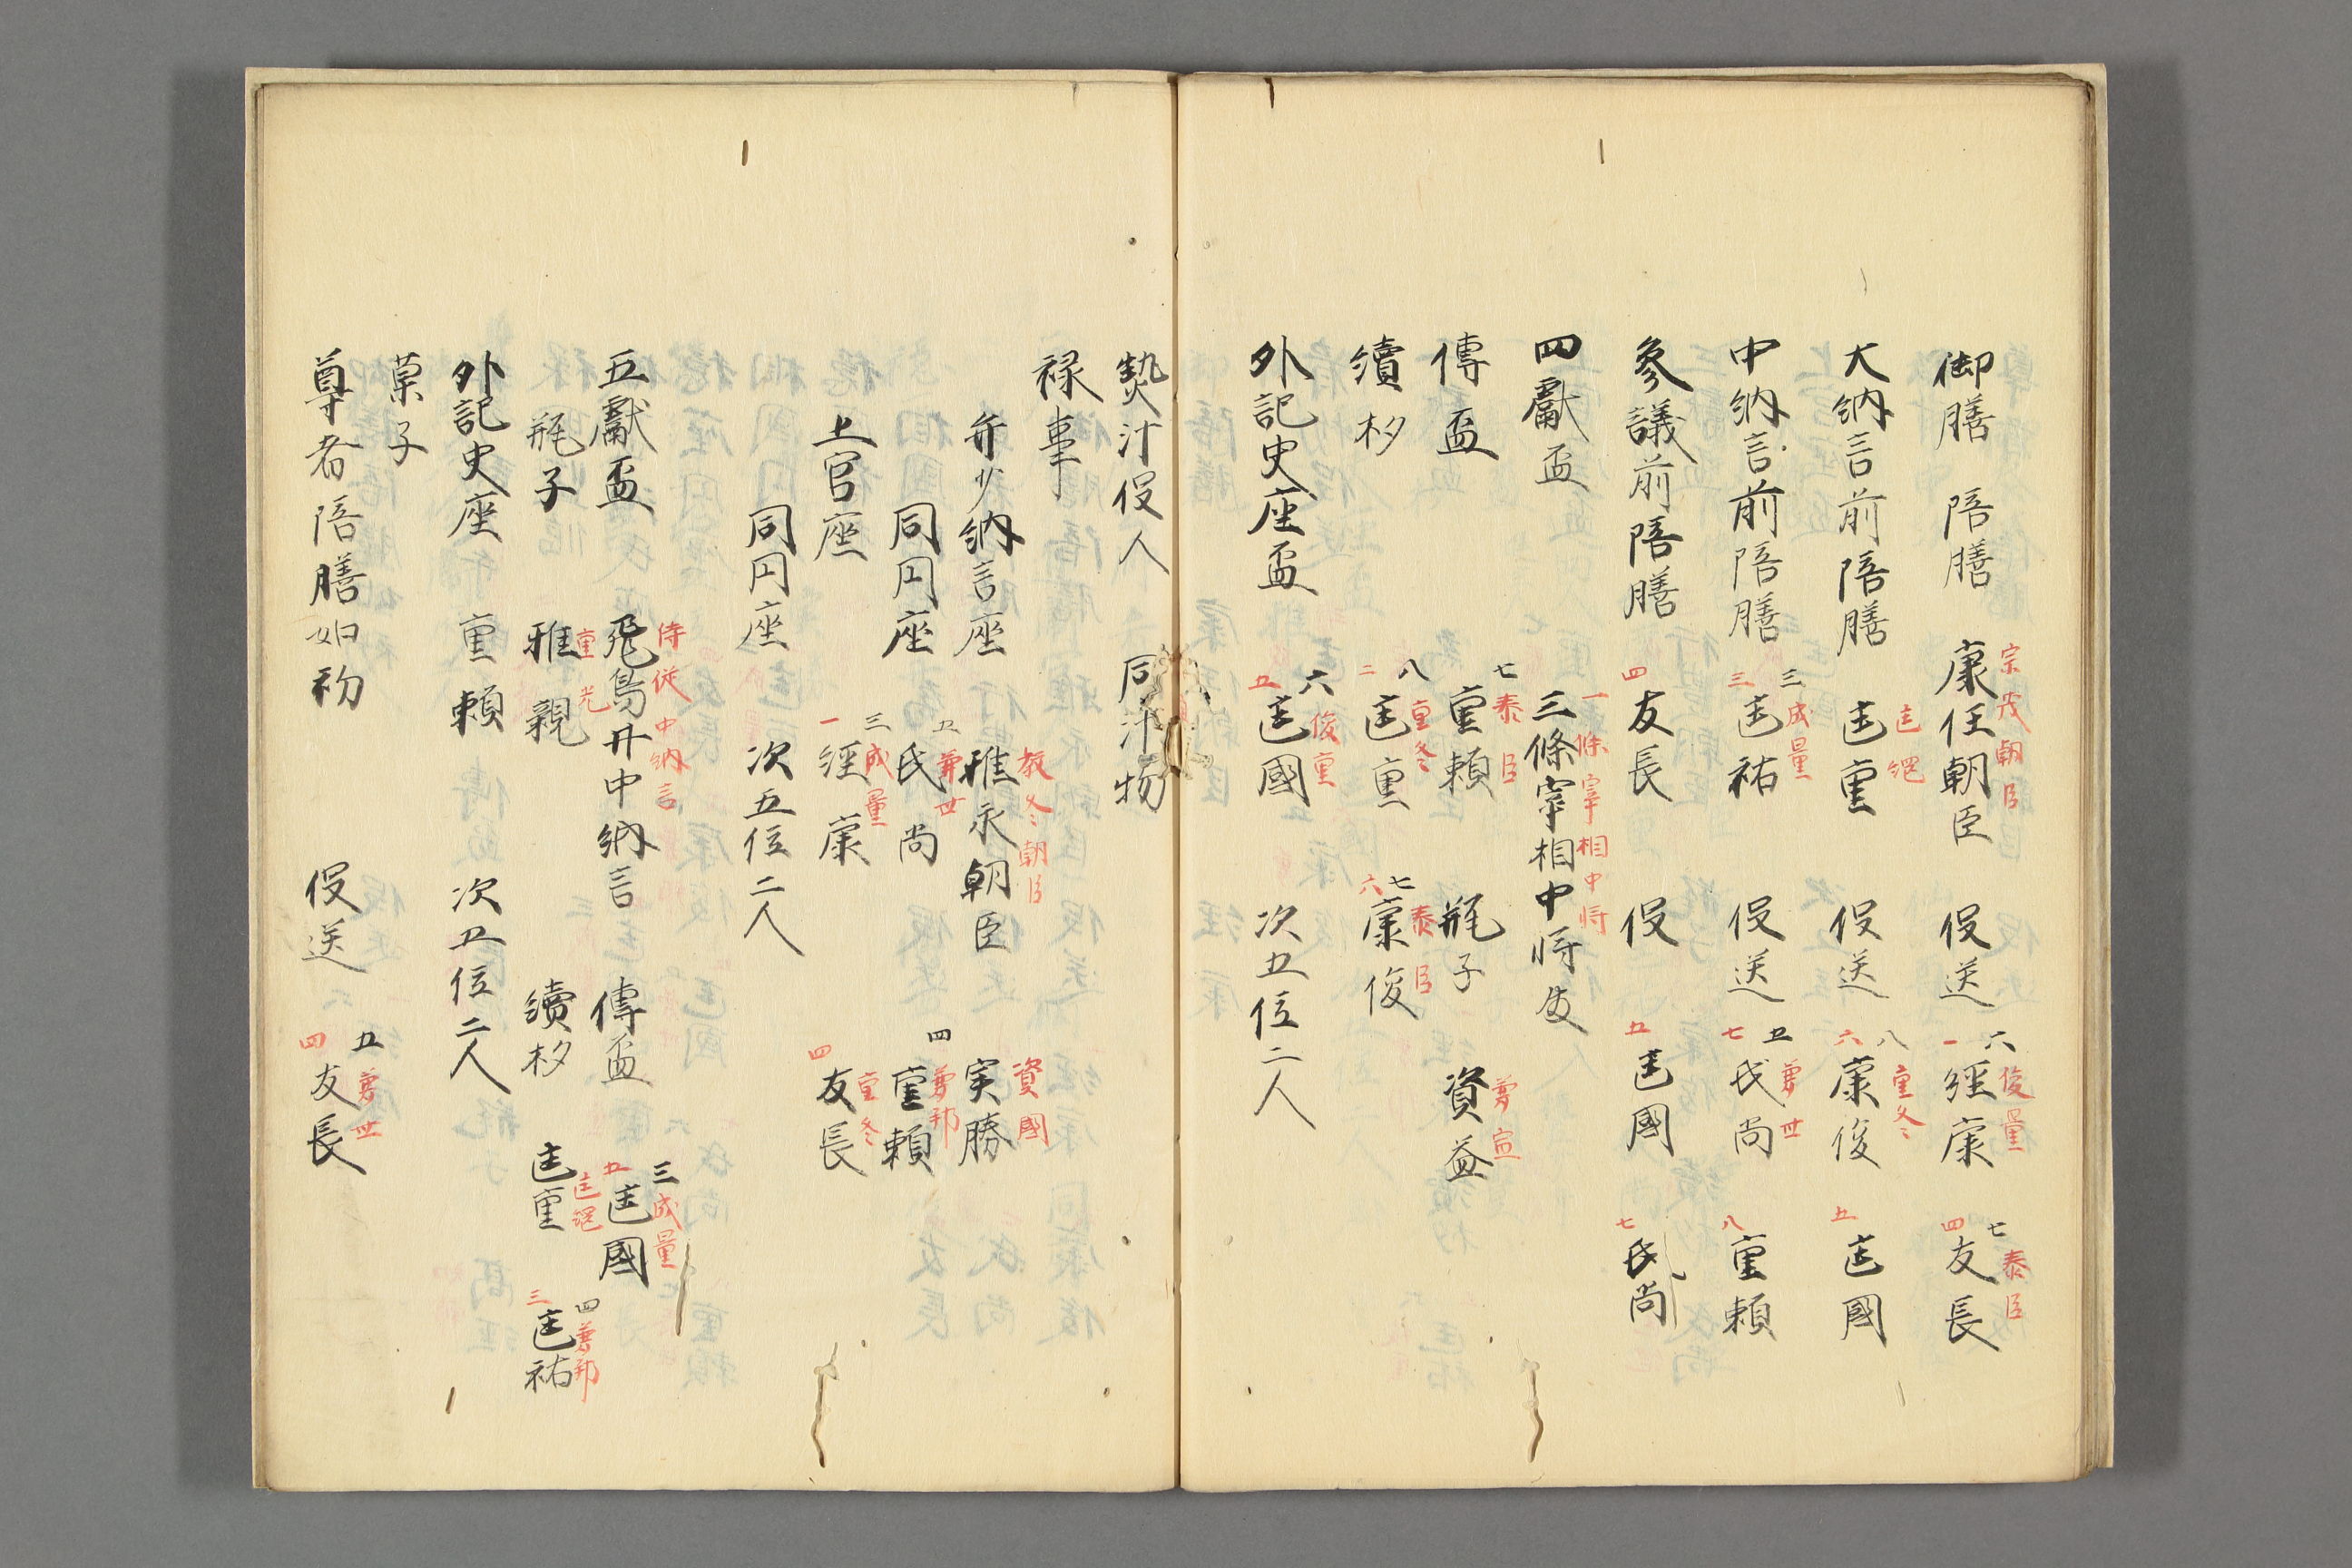 宗茂朝臣 六俊量 七泰臣
御膳 陪膳 康任朝臣 役送 一經康 四友長
匡綱 八重冬
大納言前陪膳 匡重 役送 六康俊 五匡國
三成量 五兼世
中納言前陪膳 三匡祐 役送 七氏尚 八重頼
參議前陪膳 四友長 役 五匡國 七氏尚
一條宰相中将
四獻盃 三條宰相中将
七泰臣 兼宣
傳盃 重頼 瓶子 資益
八重冬 七泰臣
續杓 二匡重 六康俊
六俊重
外記史座盃 五匡國 次五位二人
熱汁役人 同汁物
禄事
教冬朝臣 資國
弁少納言座 雅永朝臣 実勝
五兼世 四兼邦
同円座 氏尚 重頼
三成量 重冬
上官座 一經康 四友長
同円座 次五位二人
侍従中納言 三成量
五獻盃 飛鳥井中納言 傳盃 五匡國
重光 匡綱 四兼邦
瓶子 雅親 續杓 匡重 三匡祐
外記史座 重頼 次五位二人
菓子
五兼世
尊者陪膳如初 役送 四友長